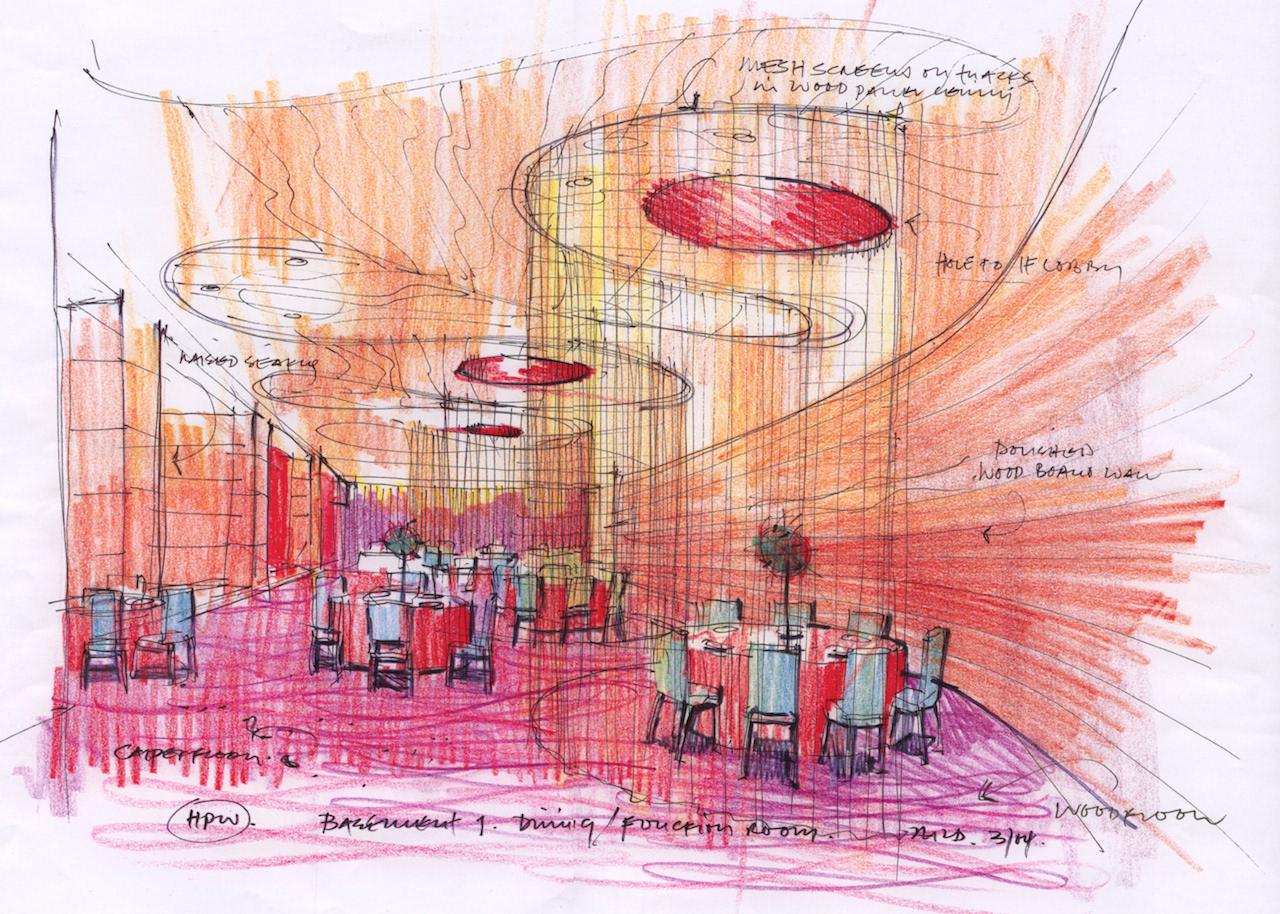 MESH SCREENS ON TRACKS
IN WOOD PANEL CEILING
HOLE TO 1F LOBBY
RAISED SEATING
POLISHED
WOOD BOARD WALL
CARPET FLOOR.
WOOD FLOOR
HPW.
BASEMENT 1. DINING / FUNCTION ROOM.
3/04.